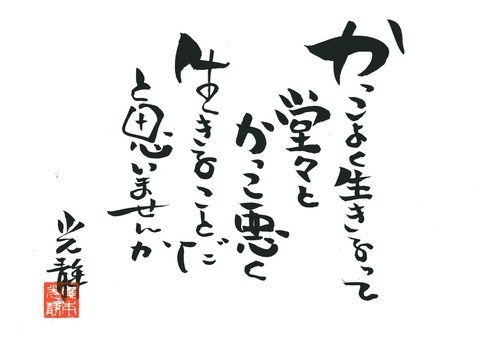 かっこよく生きるって
堂々と
かっこ悪く
生きることだ
と思いませんか
光静